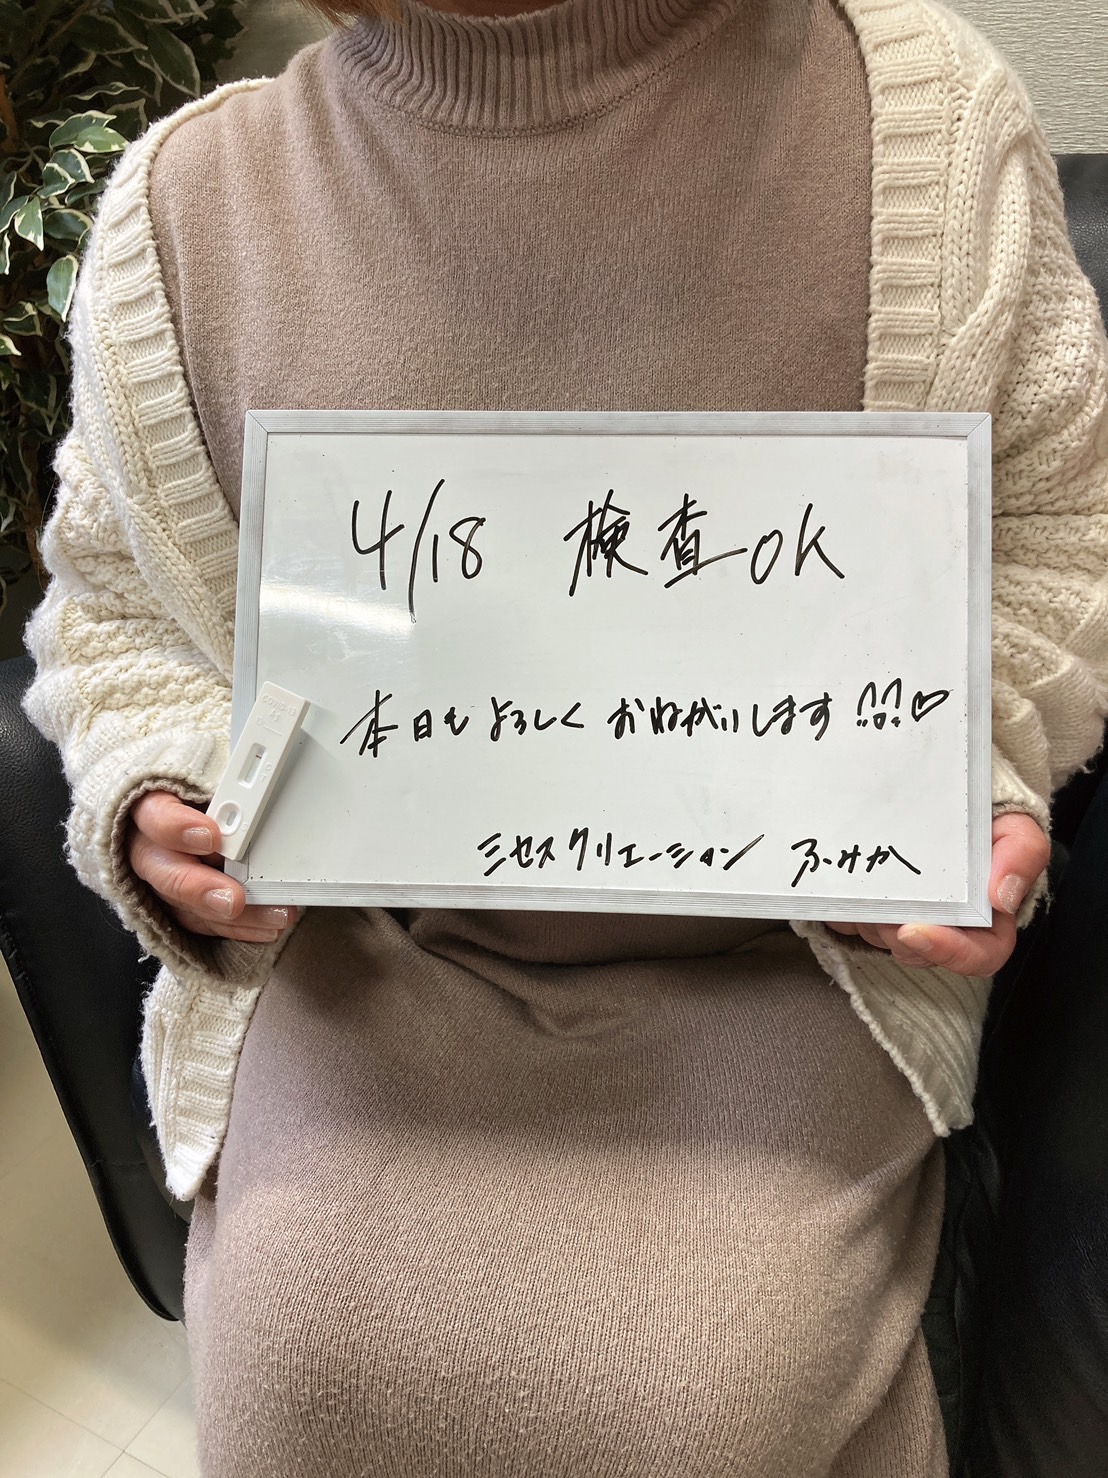 4/18 検査OK
本日もよろしくおねがいします!!!♡
ミセスクリエーション ふみか